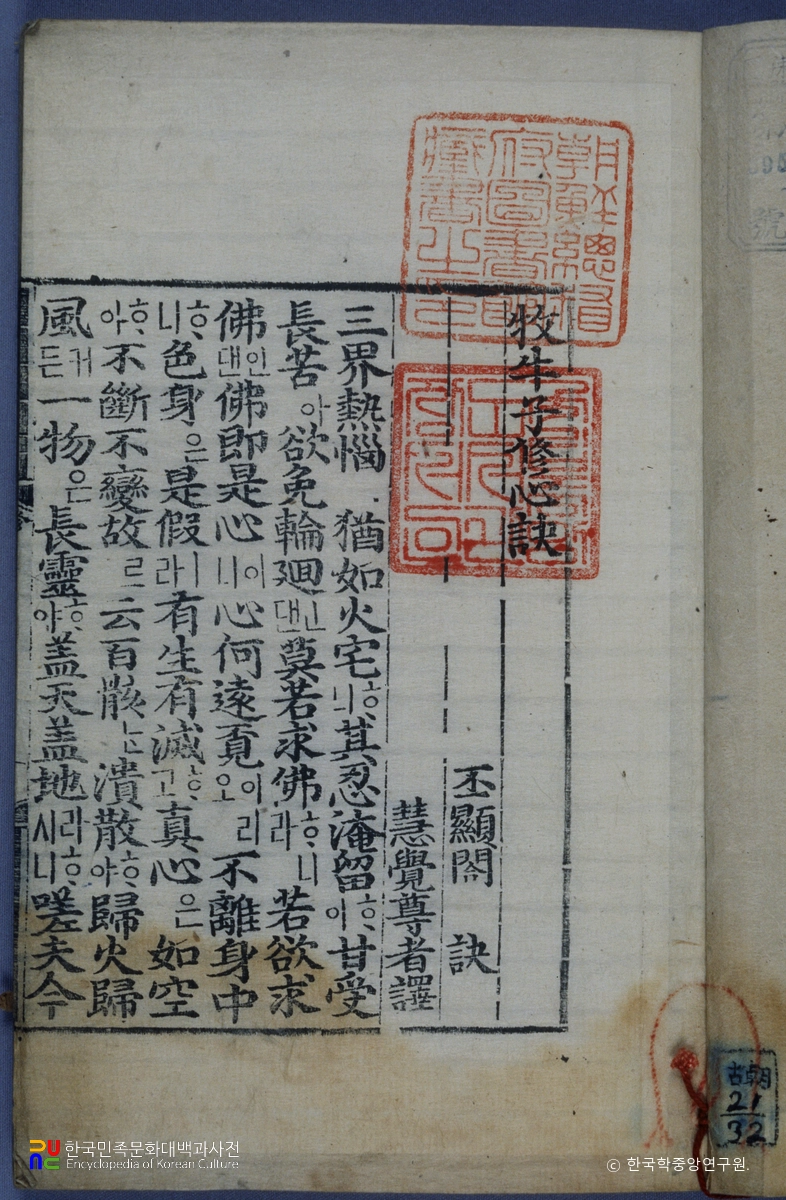 牧牛子修心訣
丕顯閤 訣
慧覺尊者譯
三界熱惱 猶如火宅ᄒᆞ니其忍淹留ᄒᆞ야甘受
長苦아欲免輪廻ㅣㄴ댄莫若求佛ᄒᆞ니라若欲求
佛인댄佛即是心이니心何遠覓이리오不離身中
ᄒᆞ니色身은是假ㅣ라有生有滅ᄒᆞ고真心은如空
ᄒᆞ야不斷不變故로云百骸ᄂᆞᆫ潰散ᄒᆞ야歸火歸
風커든一物은長靈ᄒᆞ야盖天盖地라ᄒᆞ시니嗟夫今
朝鮮總督
府圖書館
藏書之印
號
朝
古
21
32
한국민족문화대백과사전
Encyclopedia of Korean Culture
© 한국학중앙연구원.